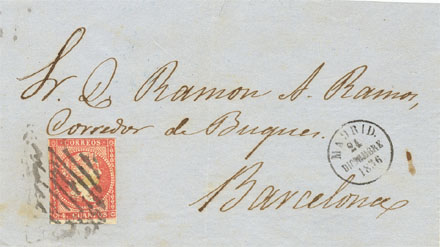 Sr. D. Ramon A. Ramos,
Corredor de Buques.
Barcelona
CORREOS
4 CUARTOS
MADRID.
21
DICIEMBRE
1856